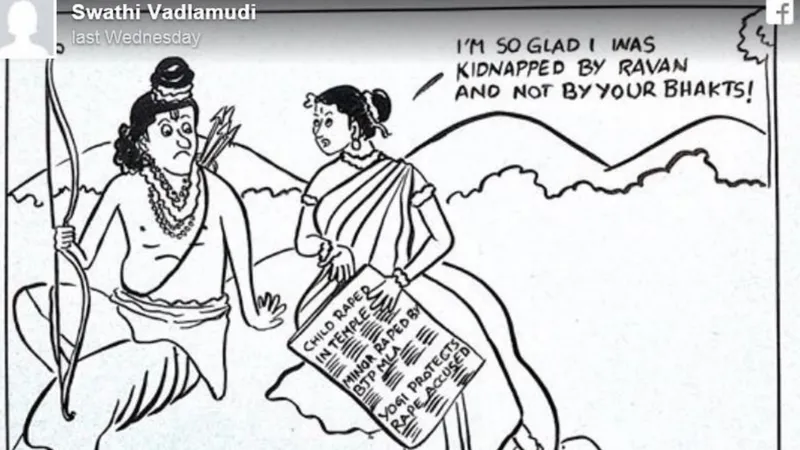 Swathi Vadlamudi
last Wednesday
I'M SO GLAD I WAS
KIDNAPPED BY RAVAN
AND NOT BY YOUR BHAKTS!
CHILD RAPED
IN TEMPLE
MINOR RAPED BY
BJP MLA
YOGI PROTECTS
RAPE ACCUSED